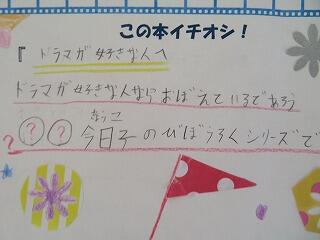 この本イチオシ！
『ドラマが好きな人へ
ドラマが好きな人ならおぼえているであろう
？？今日子のびぼうろくシリーズで